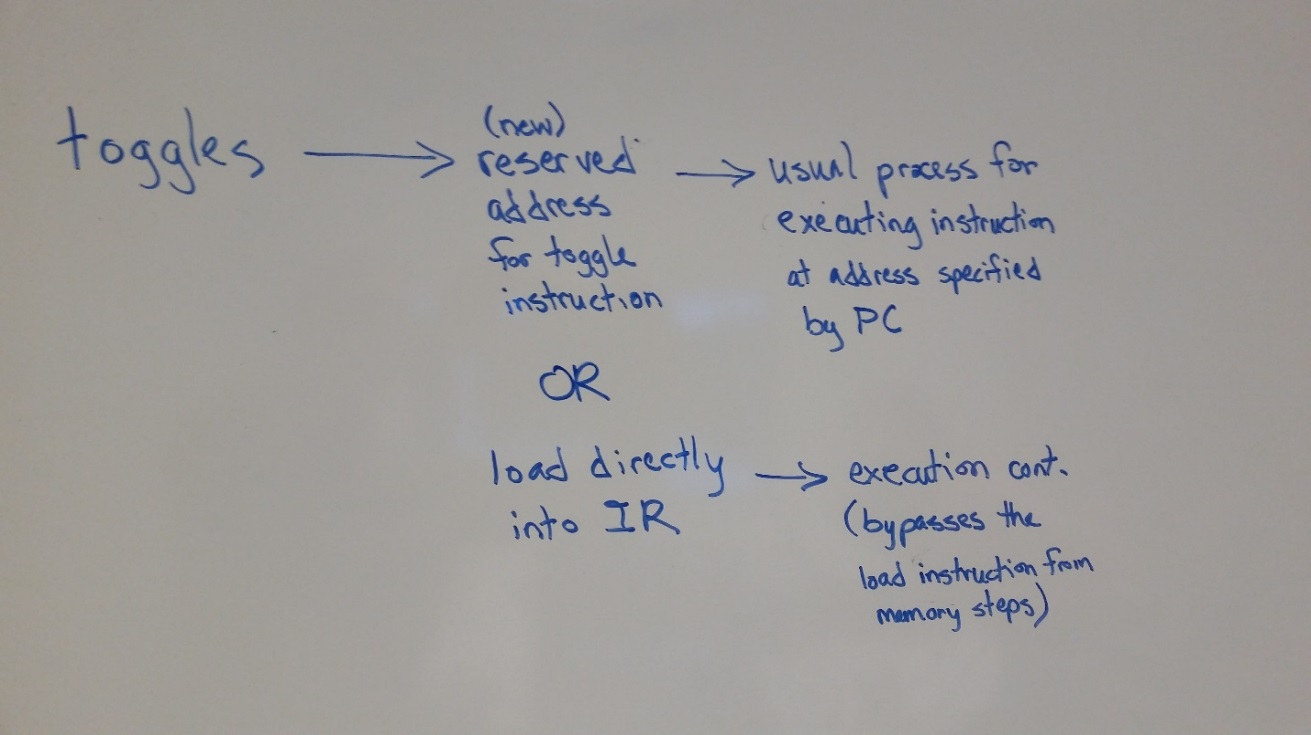 toggles
(new)
reserved
address
for toggle
instruction
usual process for
executing instruction
at address specified
by PC
OR
load directly
into IR
execution cont.
(bypasses the
load instruction from
memory steps)